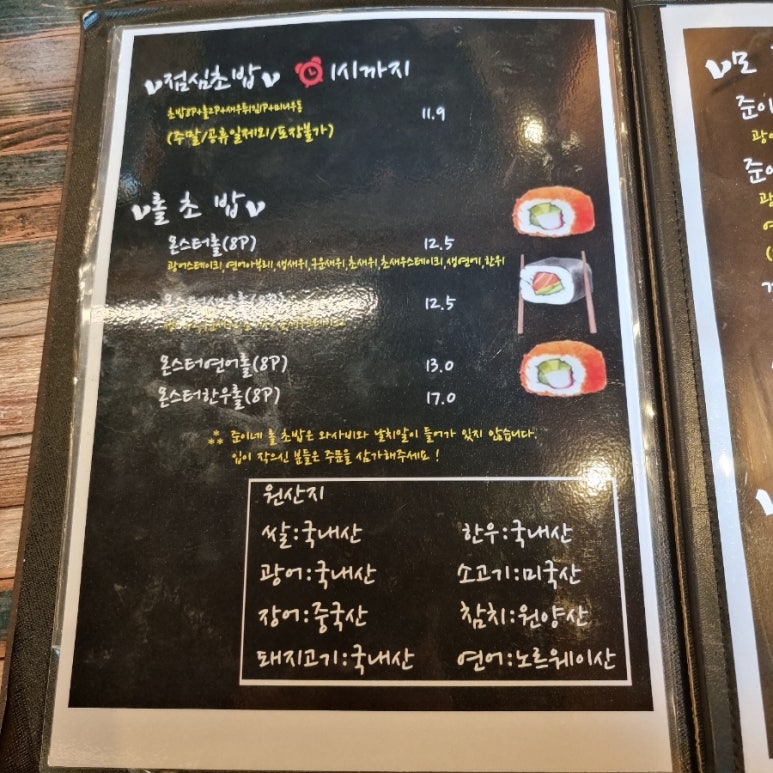 점심초밥 1시까지
초밥8P+롤2P+새우튀김1P+미니우동 11.9
(주말/공휴일제외/포장불가)
롤 초 밥
몬스터롤(8P) 12.5
광어스테이크,연어아부리,생새우,구운새우,초새우,초새우스테이크,생연어,한우
몬스터새우롤(8P) 12.5
몬스터연어롤(8P) 13.0
몬스터한우롤(8P) 17.0
준이네 롤 초밥은 와사비와 날치알이 들어가 있지 않습니다.
입이 작으신 분들은 주문을 삼가해주세요 !
원산지
쌀:국내산 한우:국내산
광어:국내산 소고기:미국산
장어:중국산 참치:원양산
돼지고기:국내산 연어:노르웨이산
모
준이
광어
준이